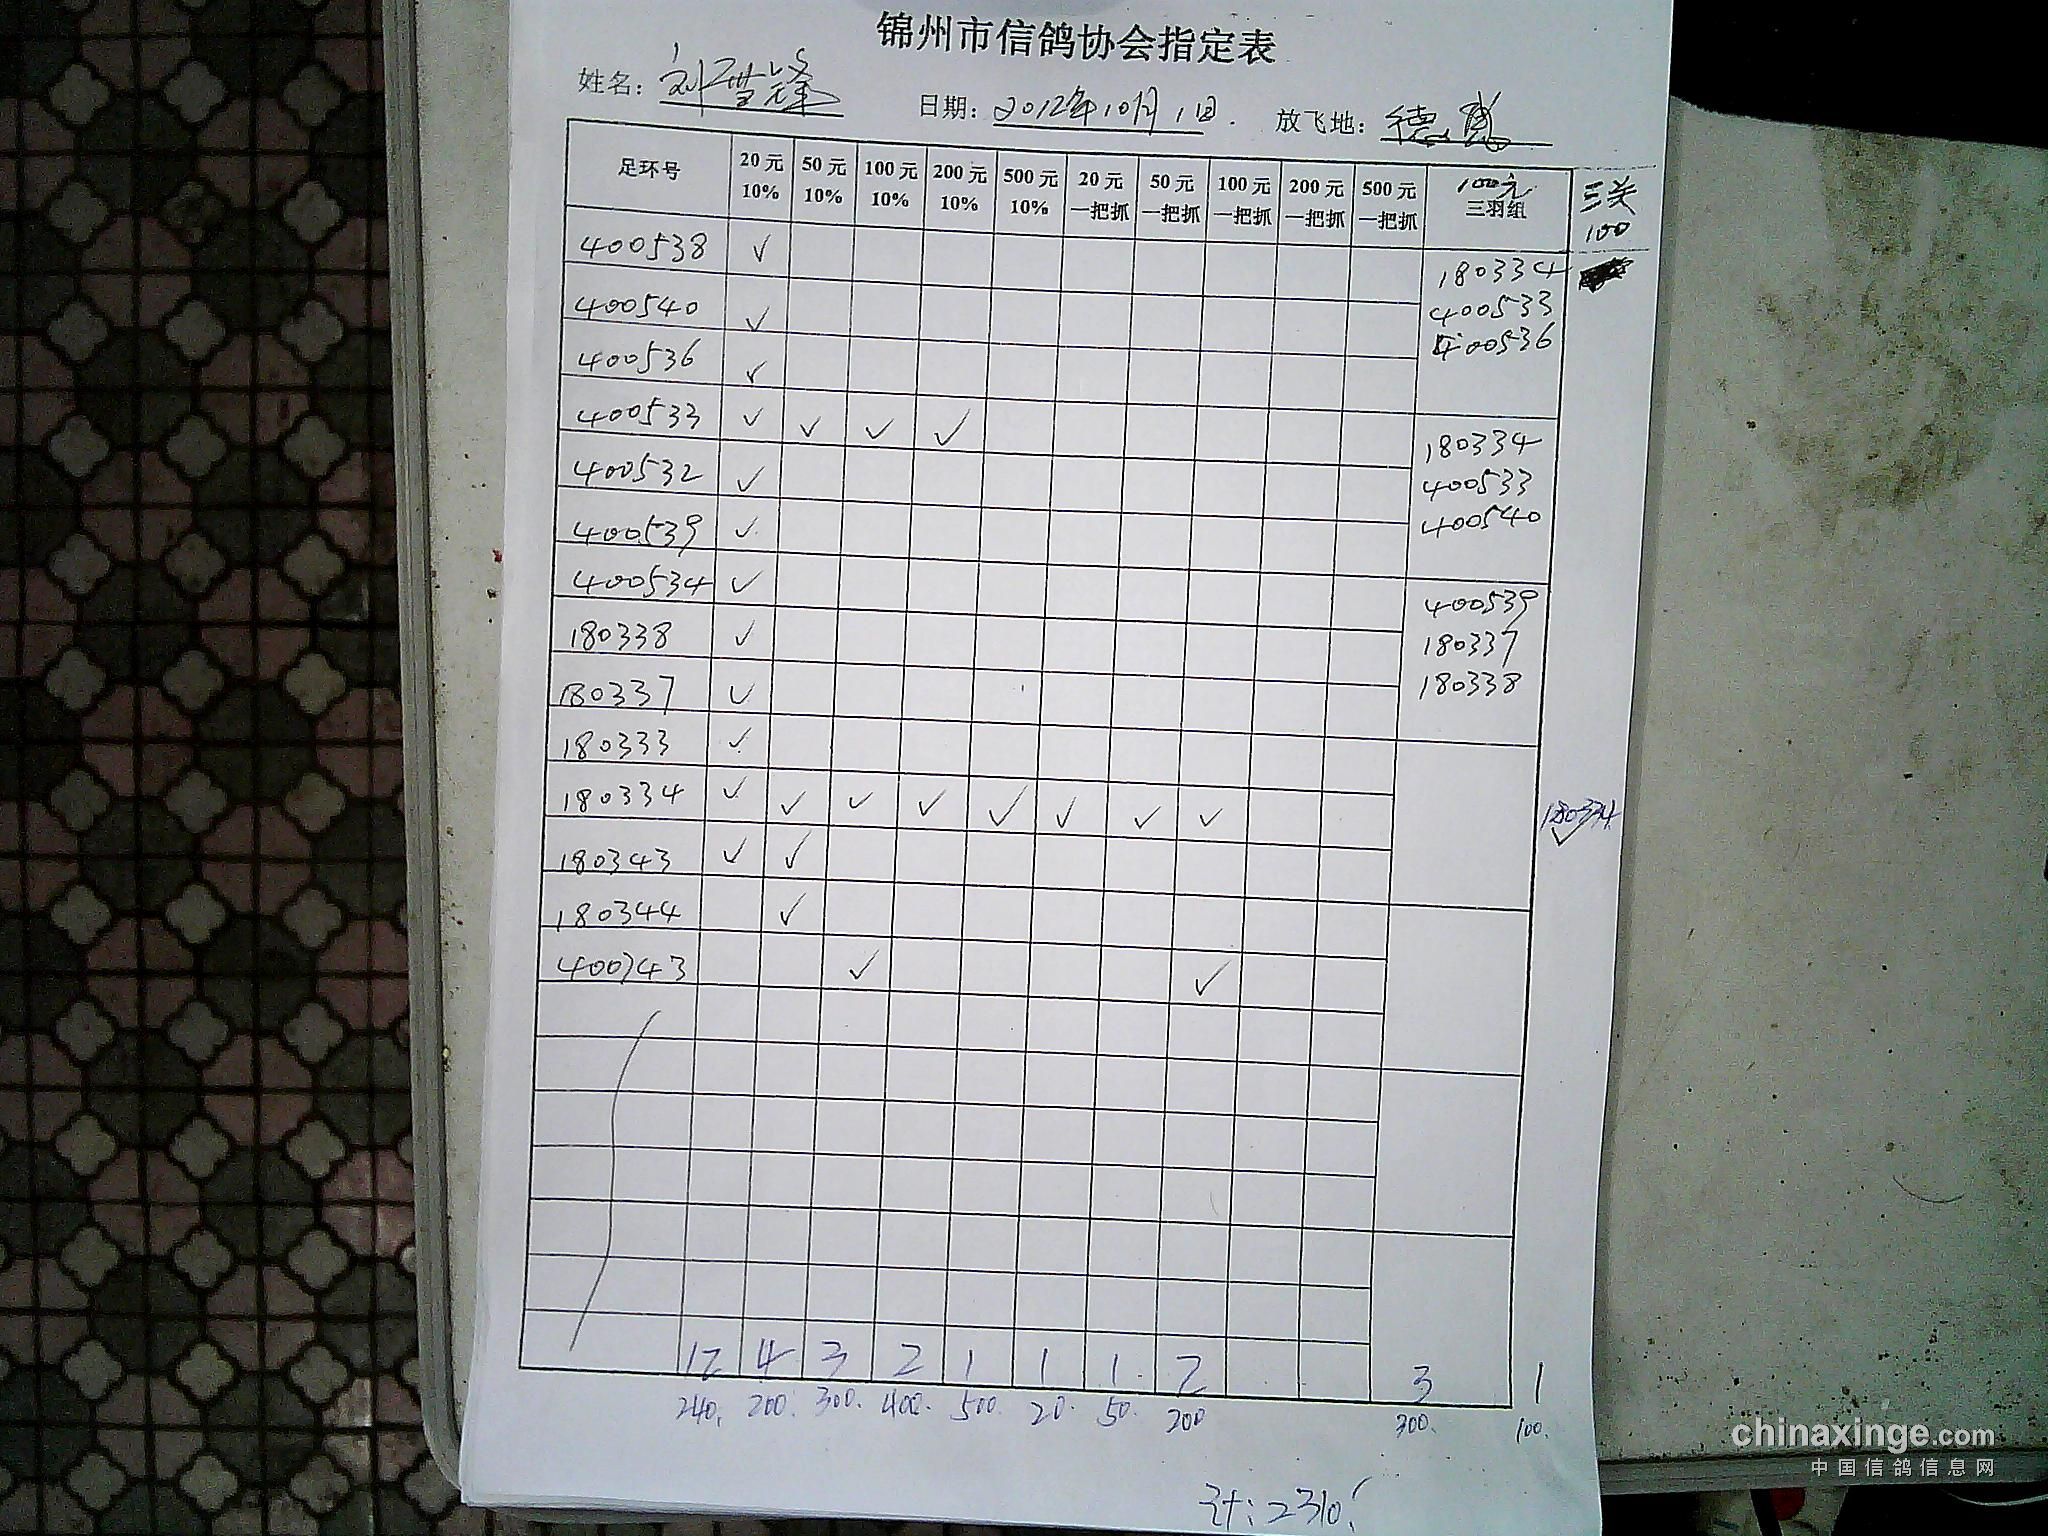 锦州市信鸽协会指定表
姓名: 刘 锋 日期: 2012年10月1日. 放飞地: 德惠
足环号 20元 10% 50元 10% 100元 10% 200元 10% 500元 10% 20元 一把抓 50元 一把抓 100元 一把抓 200元 一把抓 500元 一把抓 100元 三羽组 三关 100
400538 ✓
180334
400533
400536
400540 ✓
400536 ✓
400533 ✓ ✓ ✓ ✓
180334
400533
400540
400532 ✓
400539 ✓
400534 ✓
400539
180337
180338
180338 ✓
180337 ✓
180333 ✓
180334 ✓ ✓ ✓ ✓ ✓ ✓ ✓ ✓ 180334 ✓
180343 ✓ ✓
180344 ✓
400743 ✓ ✓
12 4 3 2 1 1 1 2 3 1
240. 200. 300. 400. 500. 20. 50. 200 300. 100.
计: 2310.
chinaxinge.com
中国信鸽信息网